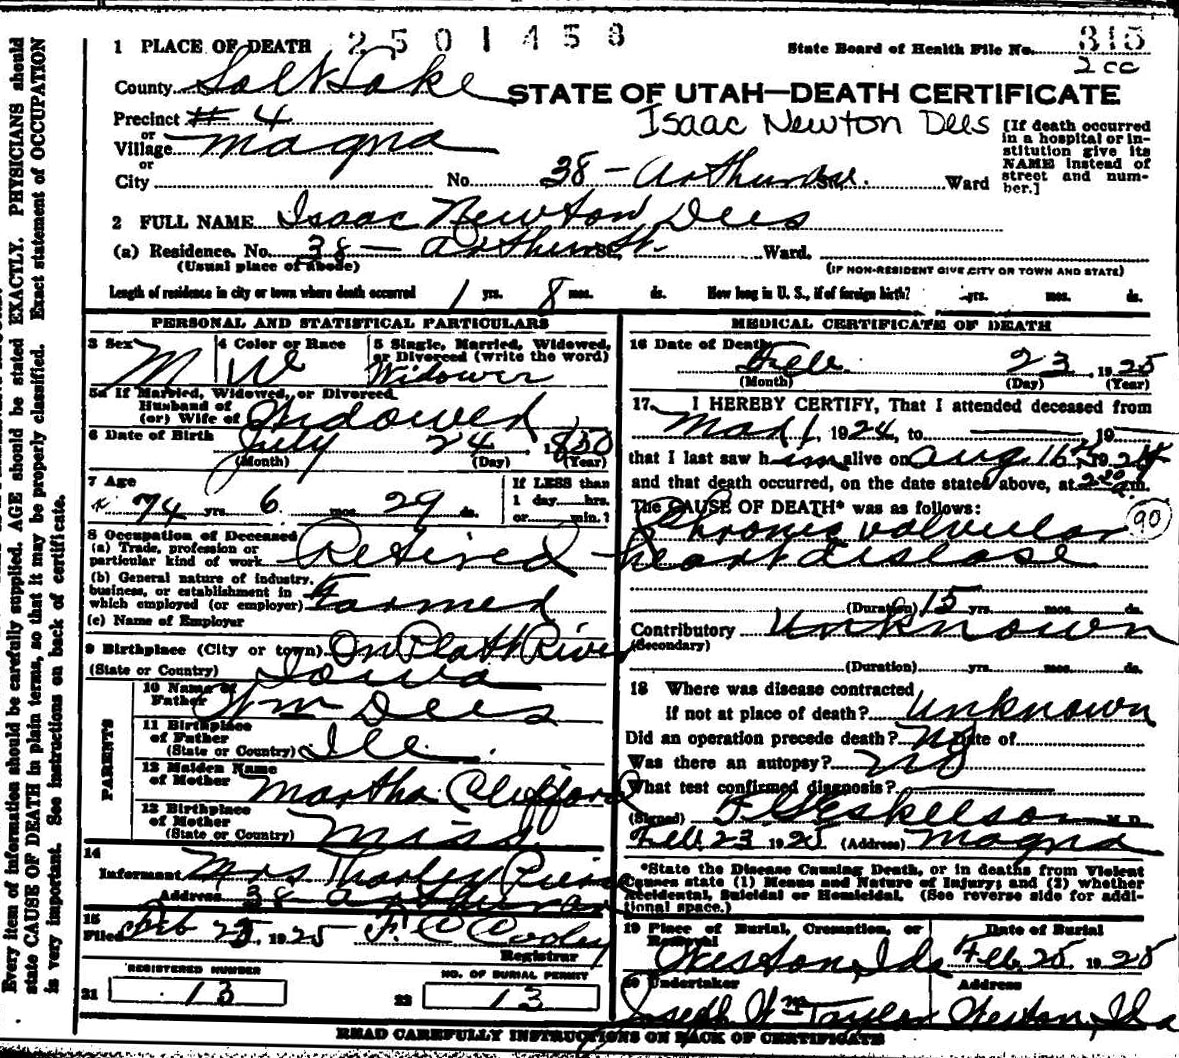 1 PLACE OF DEATH 2501458
State Board of Health File No. 315
2 cc
County Salt Lake
STATE OF UTAH—DEATH CERTIFICATE
Precinct # 4
Isaac Newton Dees
[If death occurred in a hospital or institution give its NAME instead of street and number.]
or
Village Magna
or
City No. 38 - Arthur Ward
2 FULL NAME Isaac Newton Dees
(a) Residence. No. 38 — Arthur St. Ward.
(Usual place of abode) (IF NON-RESIDENT GIVE CITY OR TOWN AND STATE)
Length of residence in city or town where death occurred 1 yrs. 8 mos. ds. How long in U. S., if of foreign birth? yrs. mos. ds.
PERSONAL AND STATISTICAL PARTICULARS
3 Sex M
4 Color or Race W
5 Single, Married, Widowed, or Divorced (write the word) Widower
5a If Married, Widowed, or Divorced
Husband of
(or) Wife of Widowed
6 Date of Birth July 24, 1850
(Month) (Day) (Year)
7 Age 74 yrs. 6 mos. 29 ds.
If LESS than
1 day hrs.
or min.?
8 Occupation of Deceased
(a) Trade, profession or
particular kind of work Retired
(b) General nature of industry,
business, or establishment in
which employed (or employer) Farmer
(c) Name of Employer
9 Birthplace (City or town) On Plath River
(State or Country) Iowa
PARENTS
10 Name of
Father Wm Dees
11 Birthplace
of Father
(State or Country) Ill.
12 Maiden Name
of Mother Martha Clifford
13 Birthplace
of Mother
(State or Country) Miss.
14
Informant Mrs Tharley
Address 38 Arthur
15
Filed Feb 25, 1925 F. C Cooley
Registrar
REGISTERED NUMBER
21 13
NO. OF BURIAL PERMIT
22 13
MEDICAL CERTIFICATE OF DEATH
16 Date of Death
Feb. 23, 1925
(Month) (Day) (Year)
17. I HEREBY CERTIFY, That I attended deceased from
1924, to 19
that I last saw him alive on Aug 16, 1924
and that death occurred, on the date stated above, at m.
The CAUSE OF DEATH* was as follows:
Chronic valvular 90
heart disease
(Duration) 15 yrs. mos. ds.
Contributory Unknown
(Secondary)
(Duration) yrs. mos. ds.
18 Where was disease contracted
if not at place of death? Unknown
Did an operation precede death? No Date of
Was there an autopsy? No
What test confirmed diagnosis?
(Signed) F. Eskelson M. D.
Feb. 23 1925 (Address) Magna
*State the Disease Causing Death, or in deaths from Violent
Causes state (1) Means and Nature of Injury; and (2) whether
Accidental, Suicidal or Homicidal. (See reverse side for addi-
tional space.)
19 Place of Burial, Cremation, or
Removal
Weston, Ida
Date of Burial
Feb. 25, 1925
20 Undertaker
Joseph Wm Taylor
Address
Weston, Ida
READ CAREFULLY INSTRUCTIONS ON BACK OF CERTIFICATE
Every item of information should be carefully supplied. AGE should be stated EXACTLY. PHYSICIANS should
state CAUSE OF DEATH in plain terms, so that it may be properly classified. Exact statement of OCCUPATION
is very important. See instructions on back of certificate.